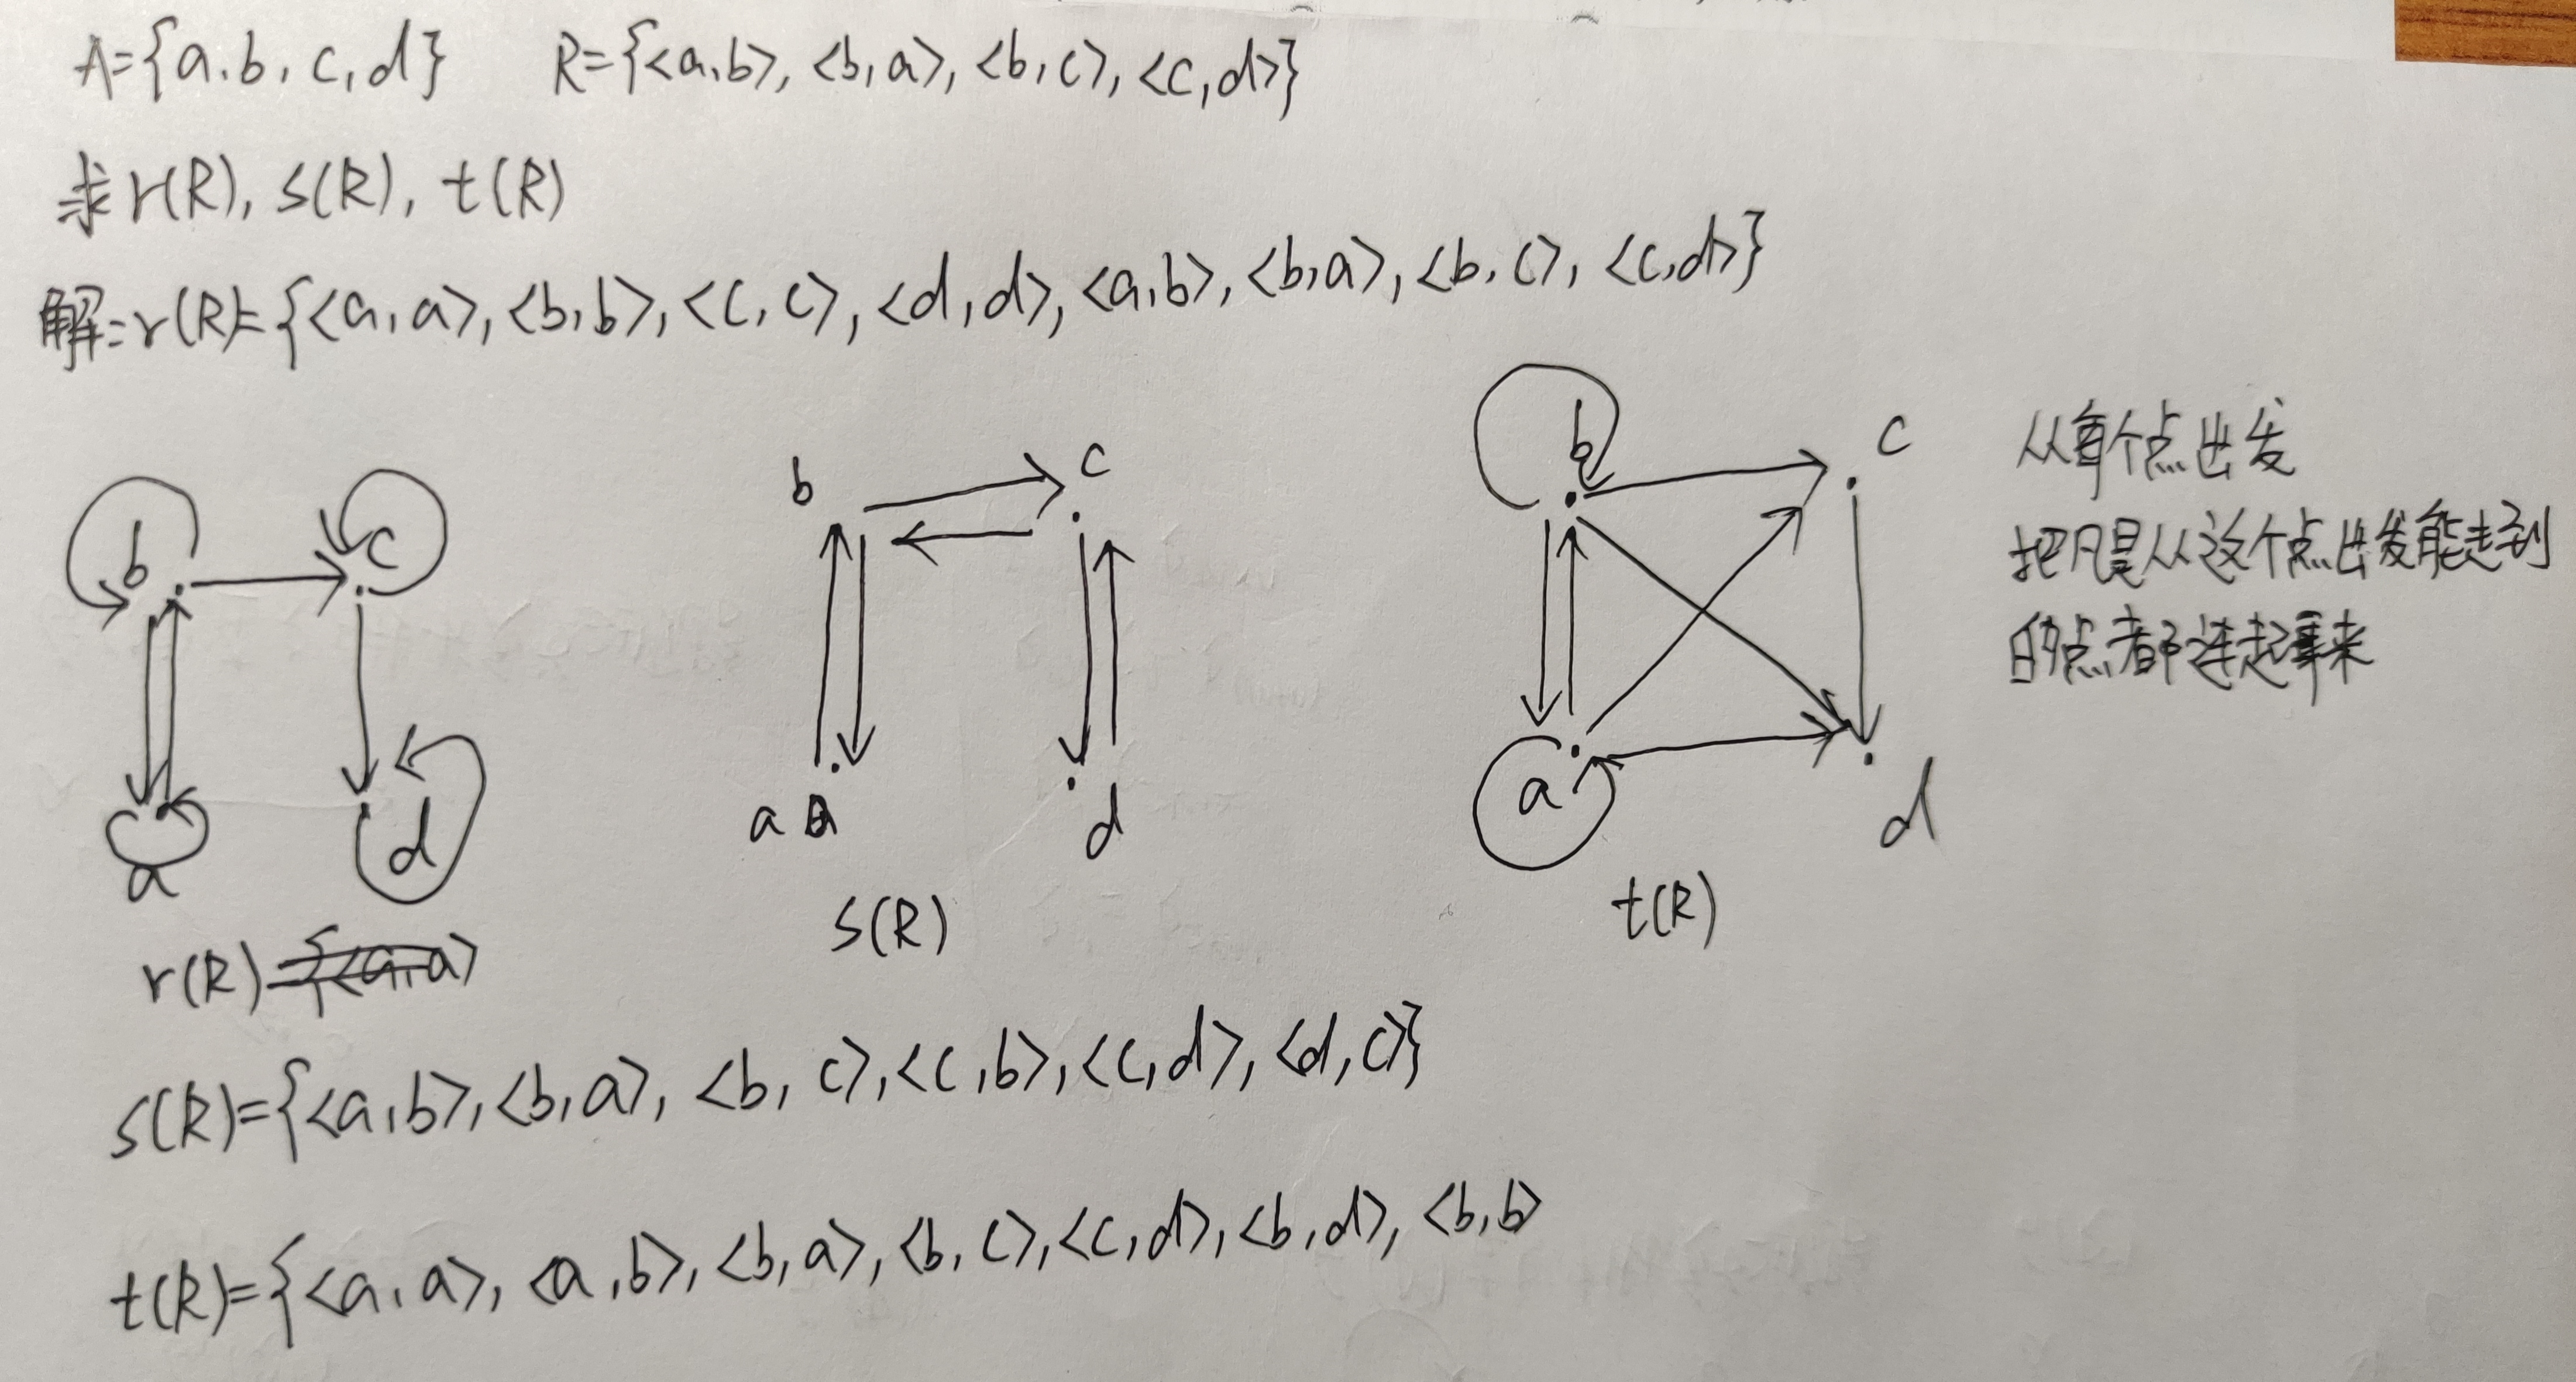 A={a.b,c,d} R={<a,b>,<b,a>,<b,c>,<c,d>}
求r(R),s(R),t(R)
解:r(R)={<a,a>,<b,b>,<c,c>,<d,d>,<a,b>,<b,a>,<b,c>,<c,d>}
b c
a d
r(R)
b c
a d
s(R)
b c
a d
t(R)
从每个点出发
把凡是从这个点出发能走到
的点都连起来
s(R)={<a,b>,<b,a>,<b,c>,<c,b>,<c,d>,<d,c>}
t(R)={<a,a>,<a,b>,<b,a>,<b,c>,<c,d>,<b,d>,<b,b>